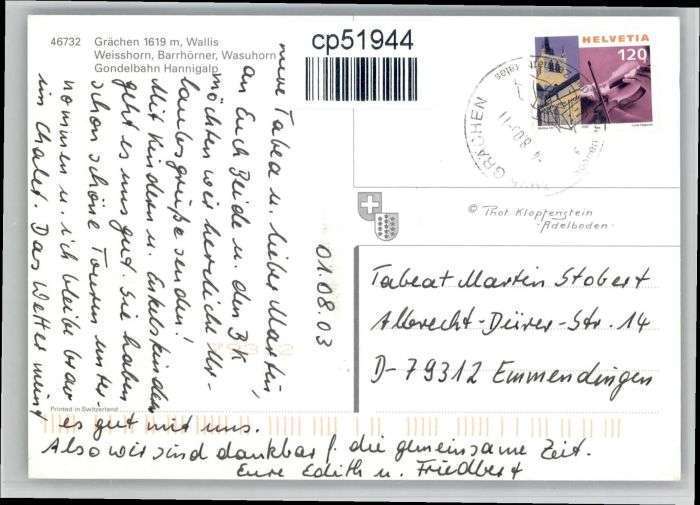 46732 Grächen 1619 m, Wallis
Weisshorn, Barrhörner, Wasuhorn
Gondelbahn Hannigalp
cp51944
HELVETIA
120
GRÄCHEN
© Phot. Klopfenstein
Adelboden
01.08.03
meine Tabea u. lieber Martin,
an Euch Beide u. den BK
möchten wir herzliche Ur-
laubsgrüße senden!
Mit Kindern u. Enkelskinder
geht es uns gut. Sie haben
schon schöne Touren unter-
nommen u. ich bleibe brav
im Chalet. Das Wetter meint
es gut mit uns.
Also wir sind dankbar f. die gemeinsame Zeit.
Eure Edith u. Friedbert
Tabea + Martin Stobert
Albrecht-Dürer-Str. 14
D-79312 Emmendingen
79312
Printed in Switzerland